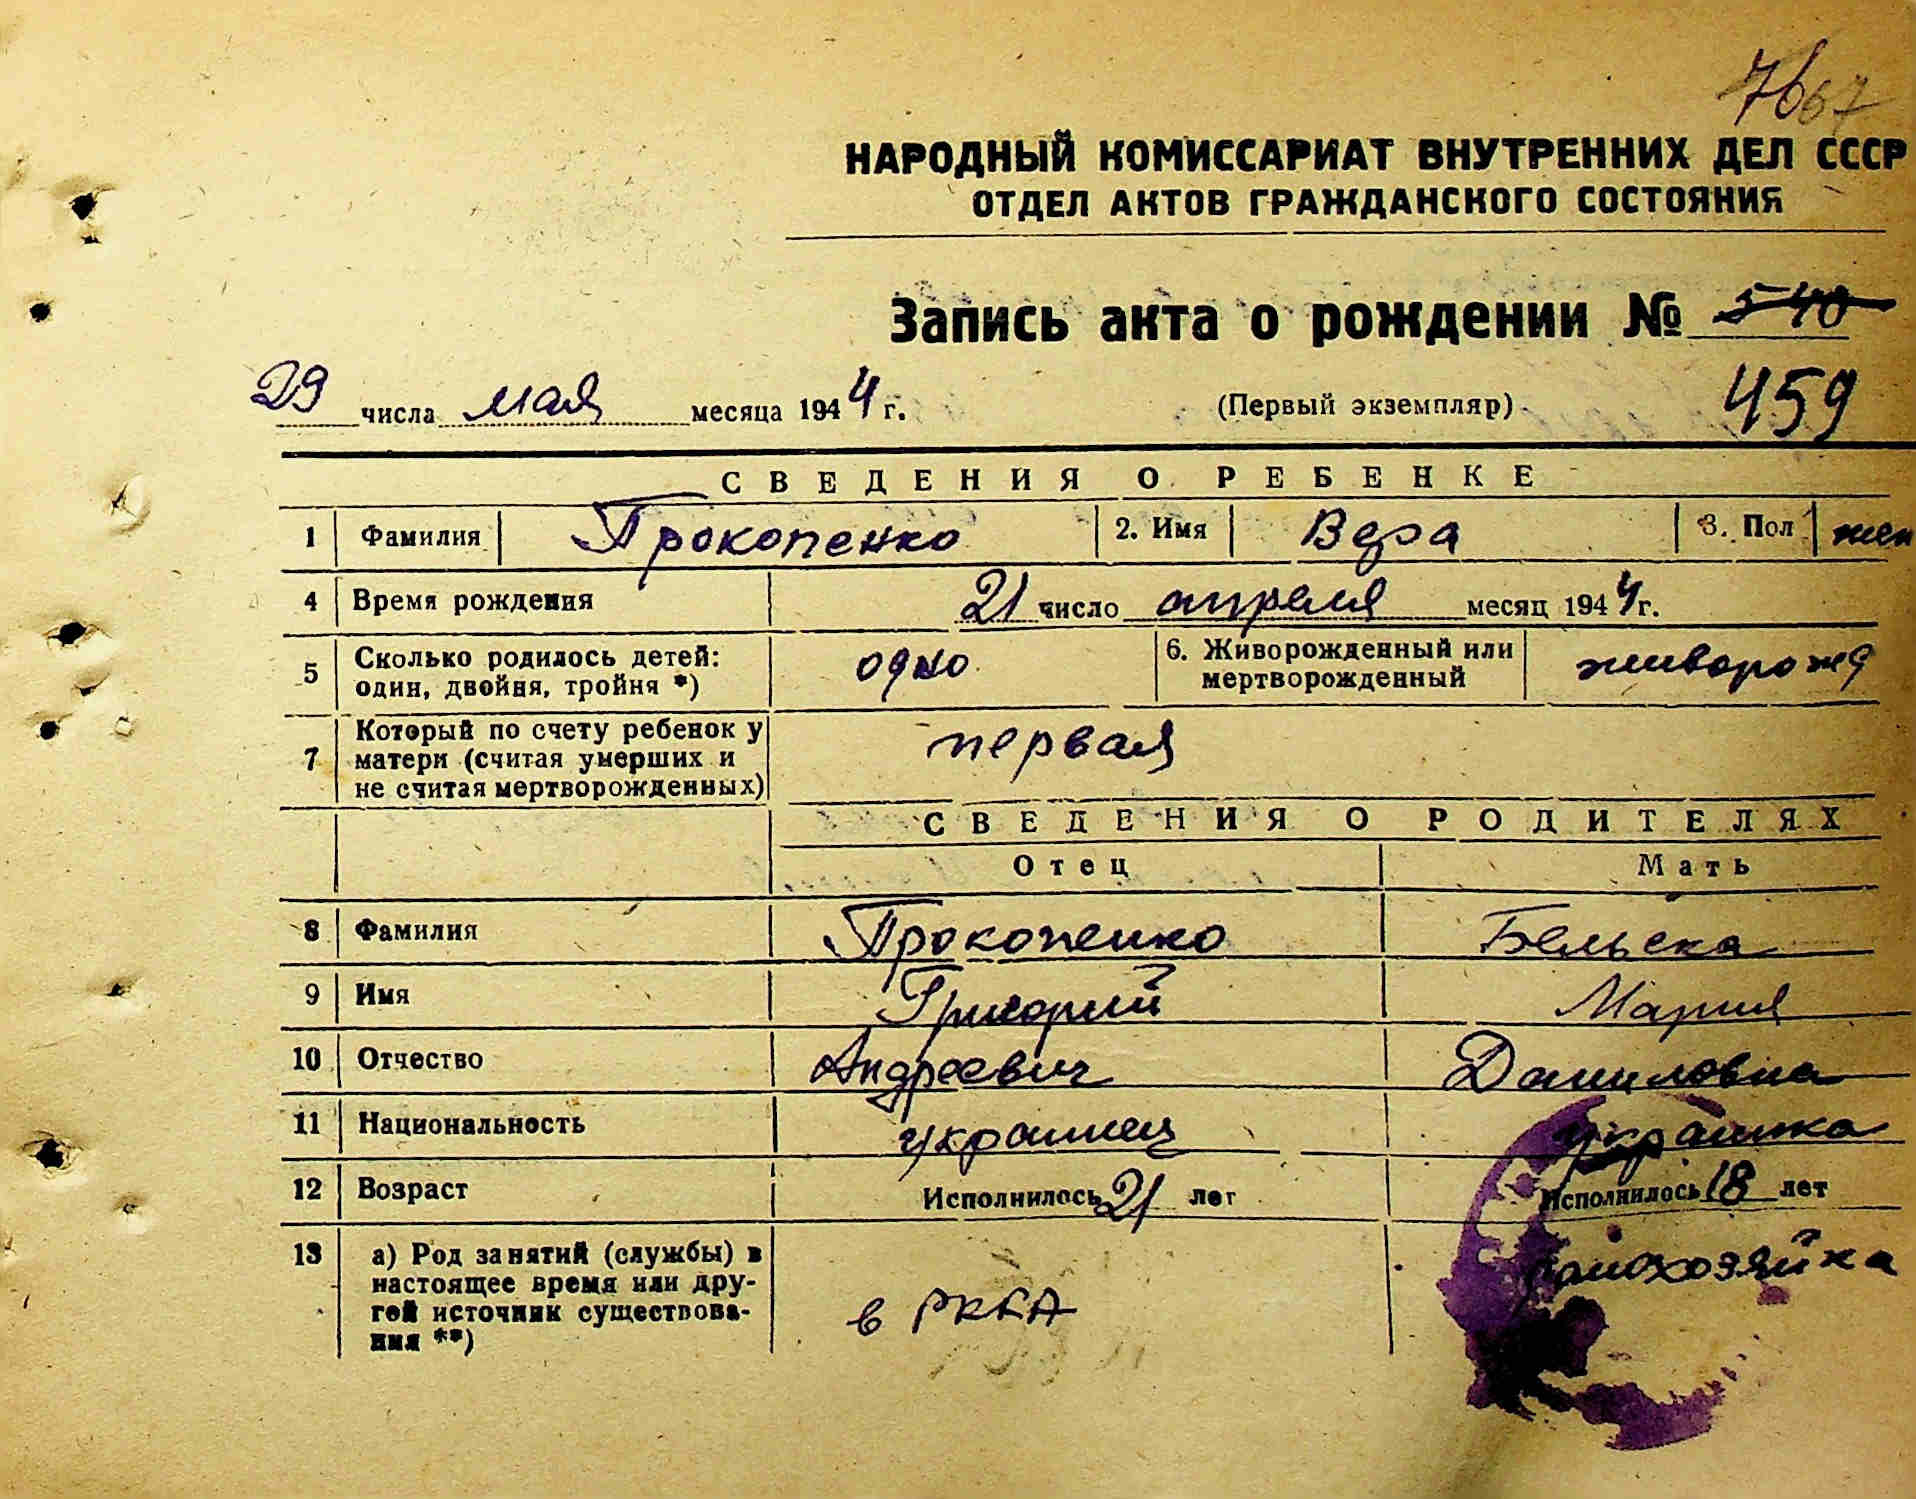 76 67
НАРОДНЫЙ КОМИССАРИАТ ВНУТРЕННИХ ДЕЛ СССР
ОТДЕЛ АКТОВ ГРАЖДАНСКОГО СОСТОЯНИЯ
Запись акта о рождении № 540
29 числа мая месяца 1944 г. (Первый экземпляр) 459
СВЕДЕНИЯ О РЕБЕНКЕ
1 Фамилия Прокопенко 2. Имя Вера 3. Пол жен
4 Время рождения 21 число апреля месяц 1944 г.
5 Сколько родилось детей: один, двойня, тройня *) одно 6. Живорожденный или мертворожденный живорожд
7 Который по счету ребенок у матери (считая умерших и не считая мертворожденных) первая
СВЕДЕНИЯ О РОДИТЕЛЯХ
Отец Мать
8 Фамилия Прокопенко Бельска
9 Имя Григорий Мария
10 Отчество Андреевич Даниловна
11 Национальность украинец украинка
12 Возраст Исполнилось 21 лет Исполнилось 18 лет
13 а) Род занятий (службы) в настоящее время или другой источник существования **) в РККА домохозяйка